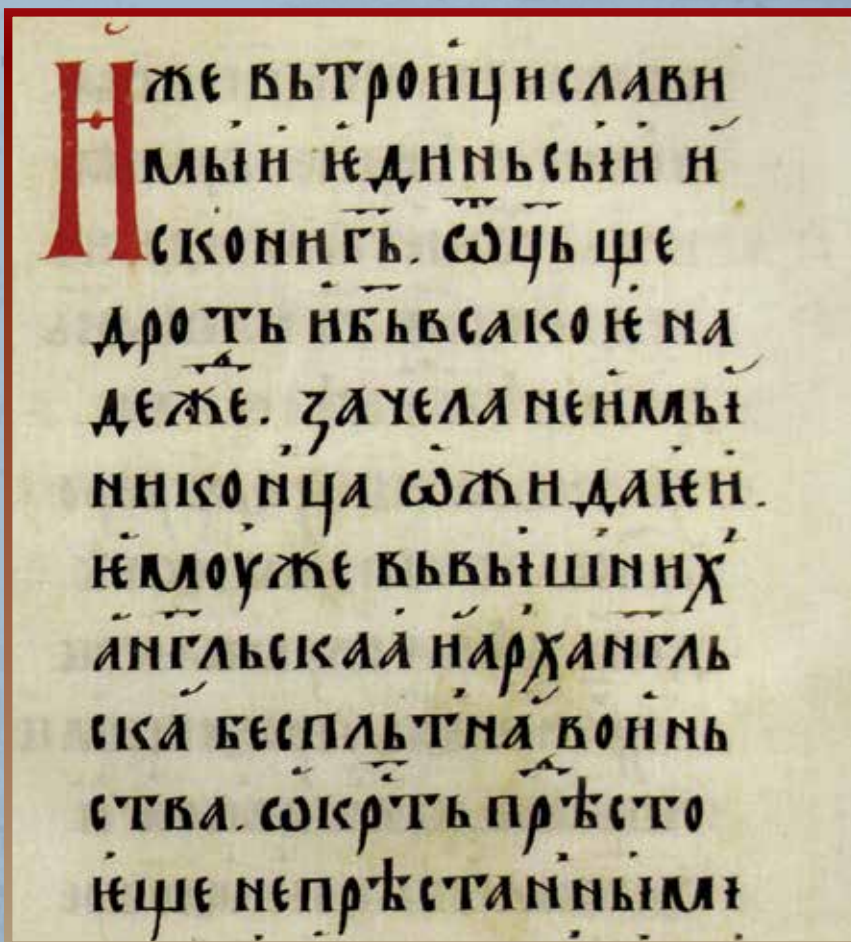 Иже вьтроици слави
мыи ѥдиньсыи и
сконигь. ѿць ще
дроть и бь всакоѥ на
деже. зачела неимы
ни конца ѡжидаѥи.
ѥмоуже вьвышних
англьскаа и архангль
ска беспльтна воинь
ства. ѡкрть прѣсто
ѥще непрѣстанными